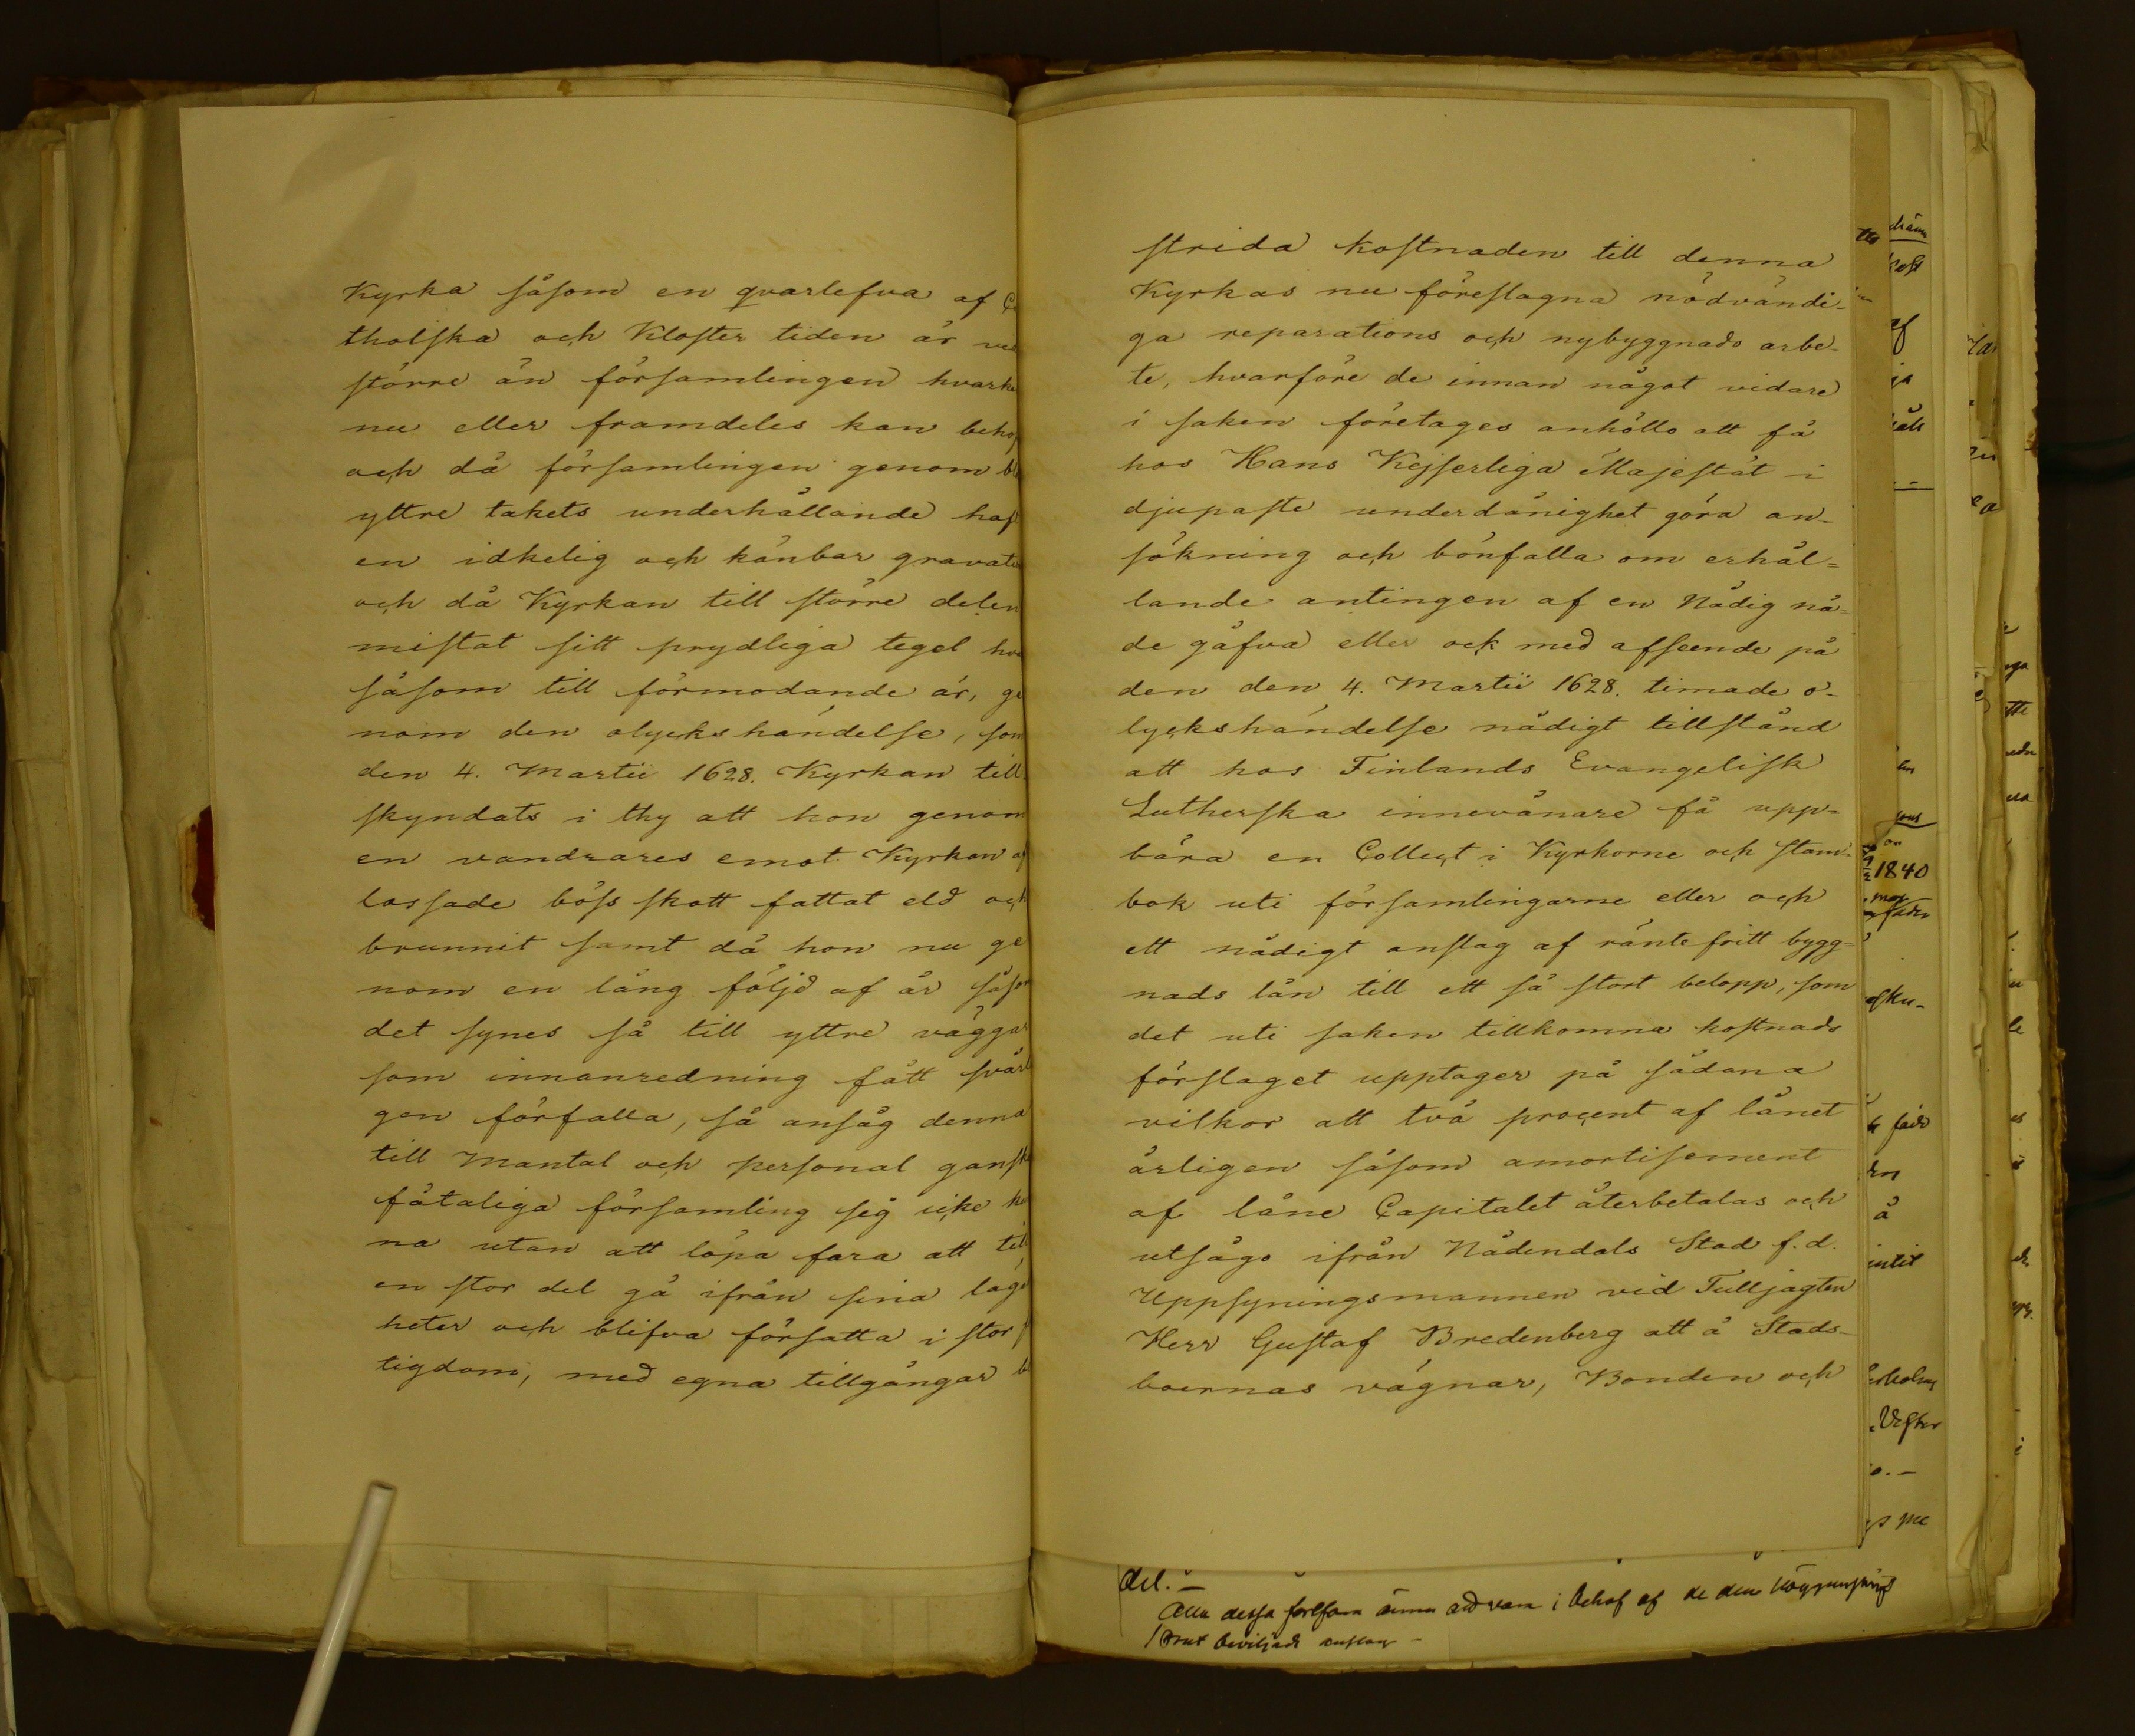 Kyrka såsom en qvarlefva af Ca
tholska och Kloster tiden är
större än församlingen
nu eller framdeles kan
och då församlingen genom
yttre takets underhållande
en idkelig och känbar
och då Kyrkan till större delen
mistat sitt prydliga tegel
såsom till förmodande är, ge
nom den olyckshändelse, som
den 4. Martii 1628. Kyrkan till
skyndats i thy att hon genom
en vandrares emot Kyrkan
lossade böss skott fattat eld och
brunnit samt då hon nu ge
nom en lång följd af år
det synes så till yttre väggar
som innanredning fått
gen förfalla, så ansåg denna
till Mantal och personal
fåtaliga församling sig icke
na utan att löpa fara att
en stor del gå ifrån sina
heter och blifva försatta i stor
tigdom, med egna tillgångar
strida kostnaden till denna
Kyrkas nu föreslagna nödvändi-
ga reparations och nybyggnads arbe-
te, hvarföre de innan något vidare
i saken företages anhöllo att få
hos Hans Kejserliga Majestät i
djupaste underdånighet göra an-
sökning och bönfalla om erhål=
lande antingen af en Nådig nå-
de gåfva eller ock med afseende på
den den 4. Martii 1628. timade o-
lyckshändelse nådigt tillstånd
att hos Finlands Evangelisk
Lutherska innevånare få upp=
bära en Collect i Kyrkorne och stam-
bok uti församlingarne eller och
ett nådigt anslag af räntefritt bygg=
nads lån till ett så stort belopp, som
det uti saken tillkomna kostnads
förslaget upptager på sådana
vilkor att två procent af lånet
årligen såsom amortisement
af låne Capitalet återbetalas och
utsågs ifrån Nådendals Stad f.d.
Uppsyningsmannen vid Tulljagten
Herr Gustaf Bredenberg att å Stads-
boernas vägnar, Bonden och
1840
del. -
Alla dessa i behof af de